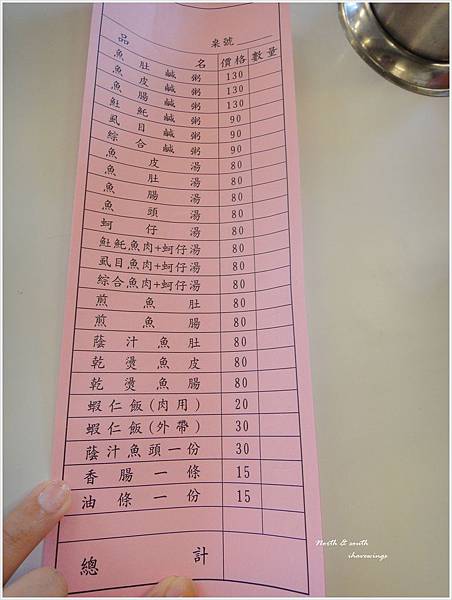 桌號
品名 價格 數量
魚肚鹹粥 130
魚皮鹹粥 130
魚腸鹹粥 130
𩵚魠鹹粥 90
虱目鹹粥 90
綜合鹹粥 90
魚皮湯 80
魚肚湯 80
魚腸湯 80
魚頭湯 80
蚵仔湯 80
𩵚魠魚肉+蚵仔湯 80
虱目魚肉+蚵仔湯 80
綜合魚肉+蚵仔湯 80
煎魚肚 80
煎魚腸 80
蔭汁魚肚 80
乾燙魚皮 80
乾燙魚腸 80
蝦仁飯(肉用) 20
蝦仁飯(外帶) 30
蔭汁魚頭一份 30
香腸一條 15
油條一份 15
總計
North & south
ihavewings